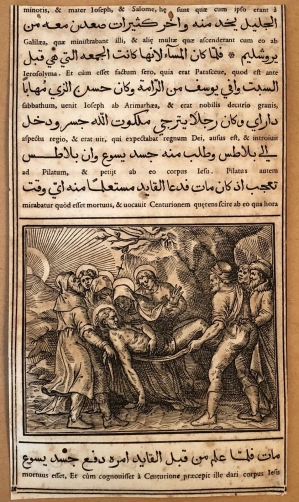 minoris, & mater Ioseph, & Salome, & sunt quæ cum ipso erant à
الجليل يخدمنه والاخر كثيرات صعدن معه من
Galilæa, quæ ministrabant illi, & aliæ multæ quæ ascenderant cum eo ab
يروشليم * فلما كان المسآء لانها كانت الجمعه التي هي قبل
Ierosolyma. Et cùm esset factum sero, quia erat Parasceue, quod est ante
السبت وافي يوسف من الرامة وكان حسن الذي مهابا
sabbathum, uenit Ioseph ab Arimathæa, & erat nobilis decurio granis,
داراي وكان رجلا يترجي ملكوت الله جسر ودخل
aspectu regio, & erat uir, qui expectabat regnum Dei, ausus est, & introiuit
الي بلاطس وطلب منه جسد يسوع وان بلاطس
ad Pilatum, & petijt ab eo corpus Iesu. Pilatus autem
تعجب اذ كان مات فدعا القايد مستعلما منه اي وقت
mirabatur quòd esset mortuus, & uocauit Centurionem quærens scire ab eo qua hora
مات فلما علم من قبل القايد امره دفع جسد يسوع
mortuus esset, Et cùm cognouisset à Centurione præcepit ille dari corpus Iesu